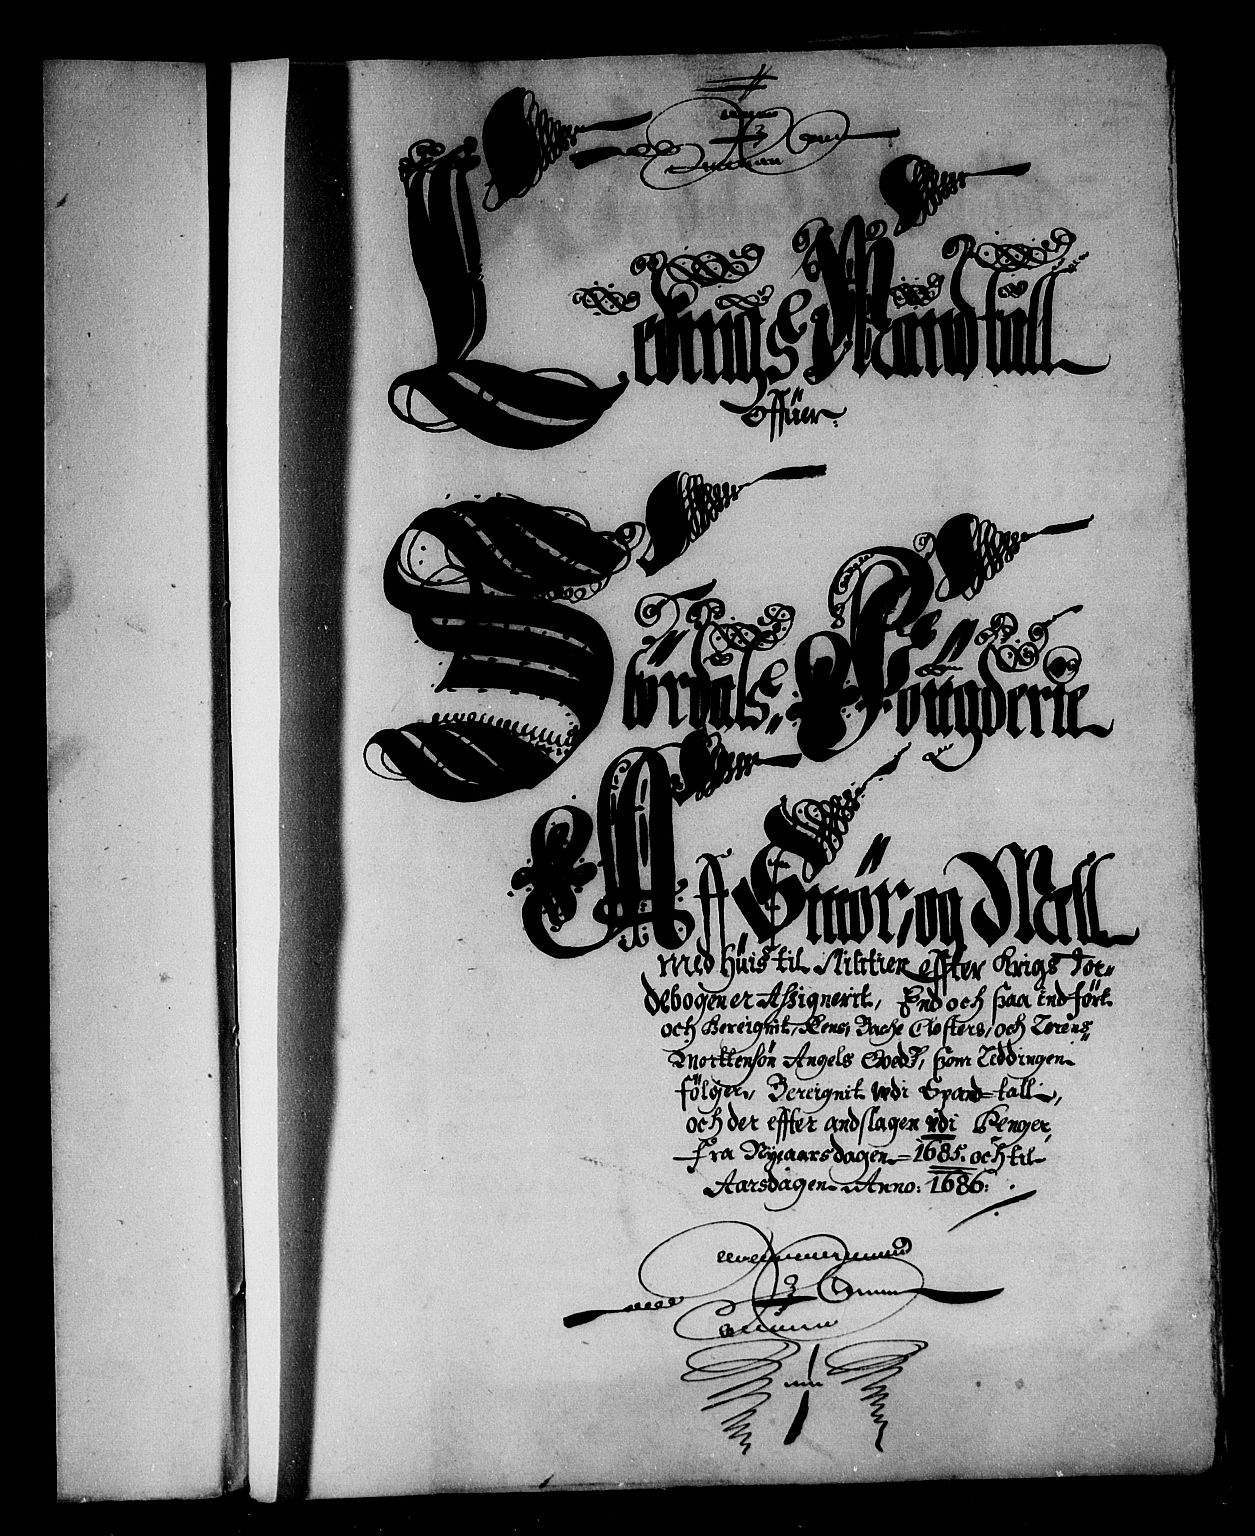 Ledings Mandtall
offuer:
Stördals, Fougderie
Aff Smör, og Mell
med huis til Militien effter Krigs Jor-
debogen er Assignerit, End och saa indfört
och Bereignit, Rens, Bache Closters, och Lorens
Morttensön Angels Goedz, som Leddingen
fölger, Bereignit udi Spand=tall,
och der effter andslagen udi Penger,
fra Nyeaarsdagen = 1685. och til
Aarsdagen Anno: 1686: